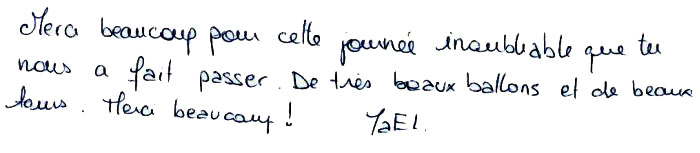 Merci beaucoup pour cette journée inoubliable que tu
nous a fait passer. De très beaux ballons et de beaux
tours. Merci beaucoup ! YaEl.